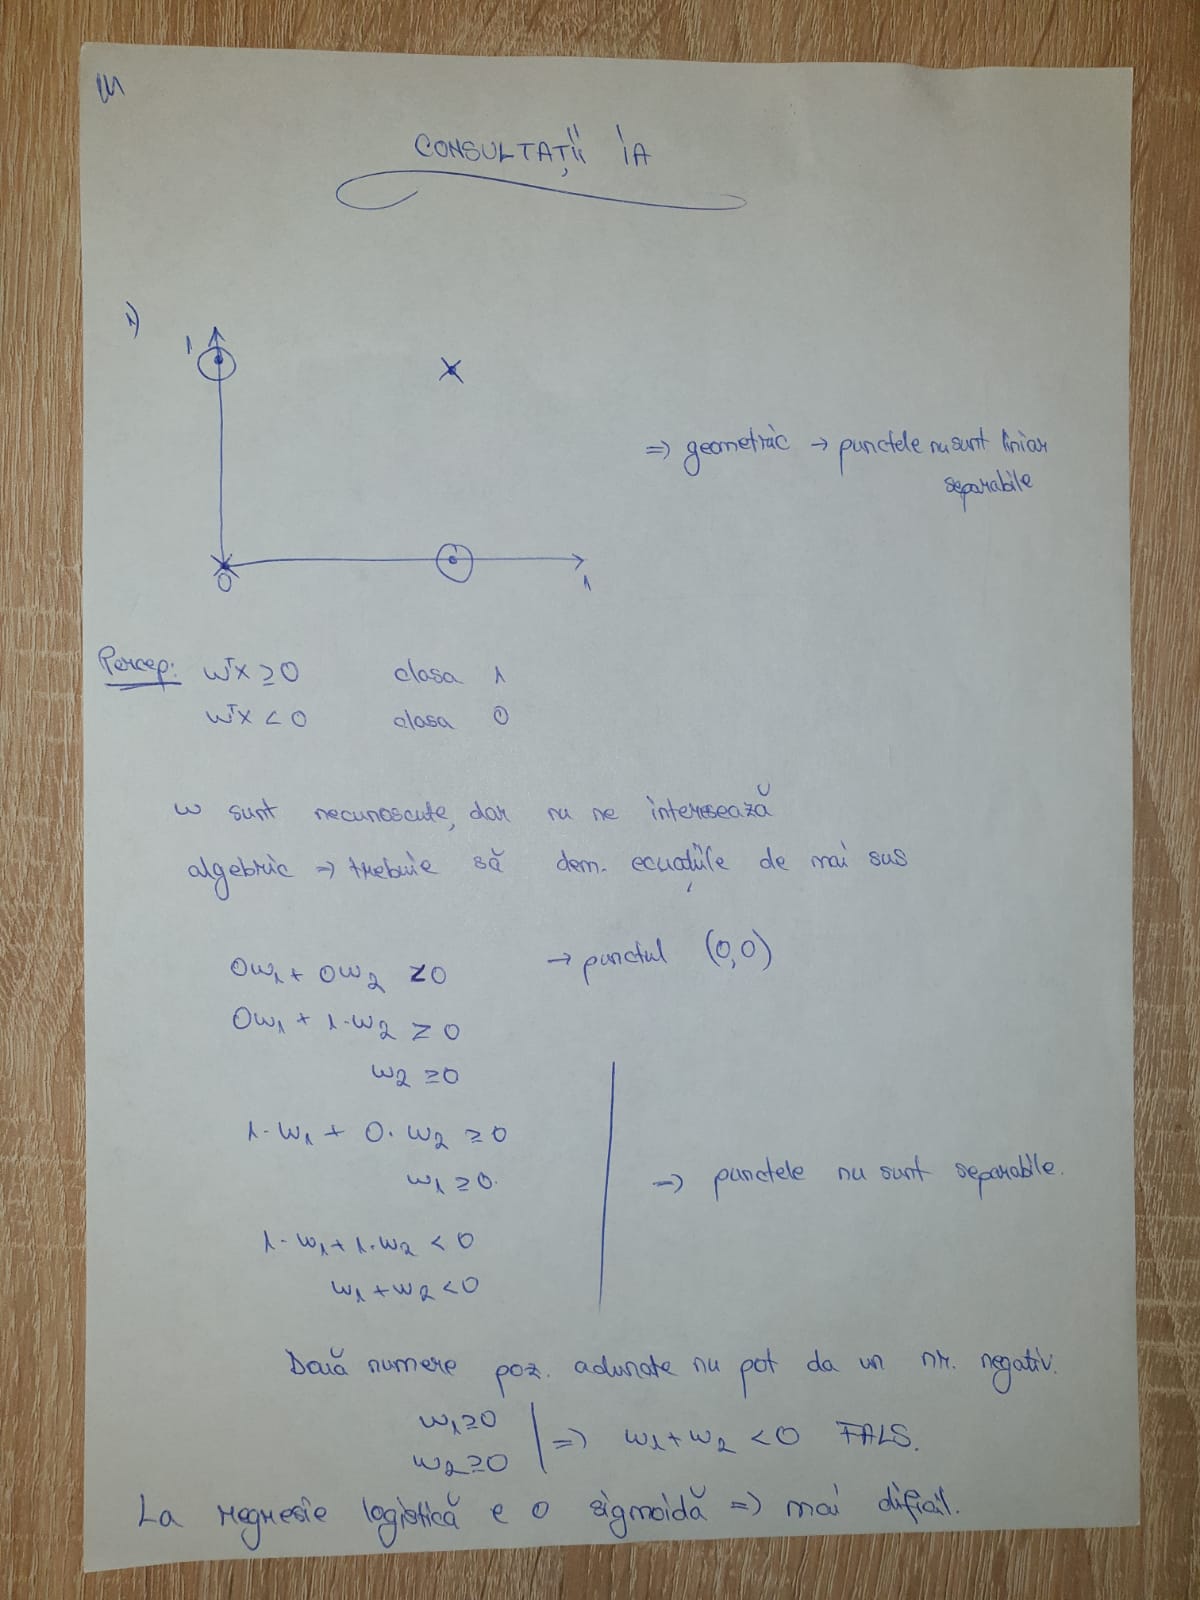 CONSULTAȚII IA
1)
1
=) geometric → punctele nu sunt liniar
separabile
0
1
Percep: wᵀx ≥ 0 clasa 1
wᵀx < 0 clasa 0
w sunt necunoscute, dar nu ne interesează
algebric =) trebuie să dem. ecuațiile de mai sus
0w₁ + 0w₂ ≥ 0 → punctul (0,0)
0w₁ + 1·w₂ ≥ 0
w₂ ≥ 0
1·w₁ + 0·w₂ ≥ 0
w₁ ≥ 0.
=) punctele nu sunt separabile.
1·w₁ + 1·w₂ < 0
w₁ + w₂ < 0
Două numere poz. adunate nu pot da un nr. negativ.
w₁ ≥ 0
w₂ ≥ 0 =) w₁ + w₂ < 0 FALS.
La regresie logistică e o sigmoidă =) mai dificil.